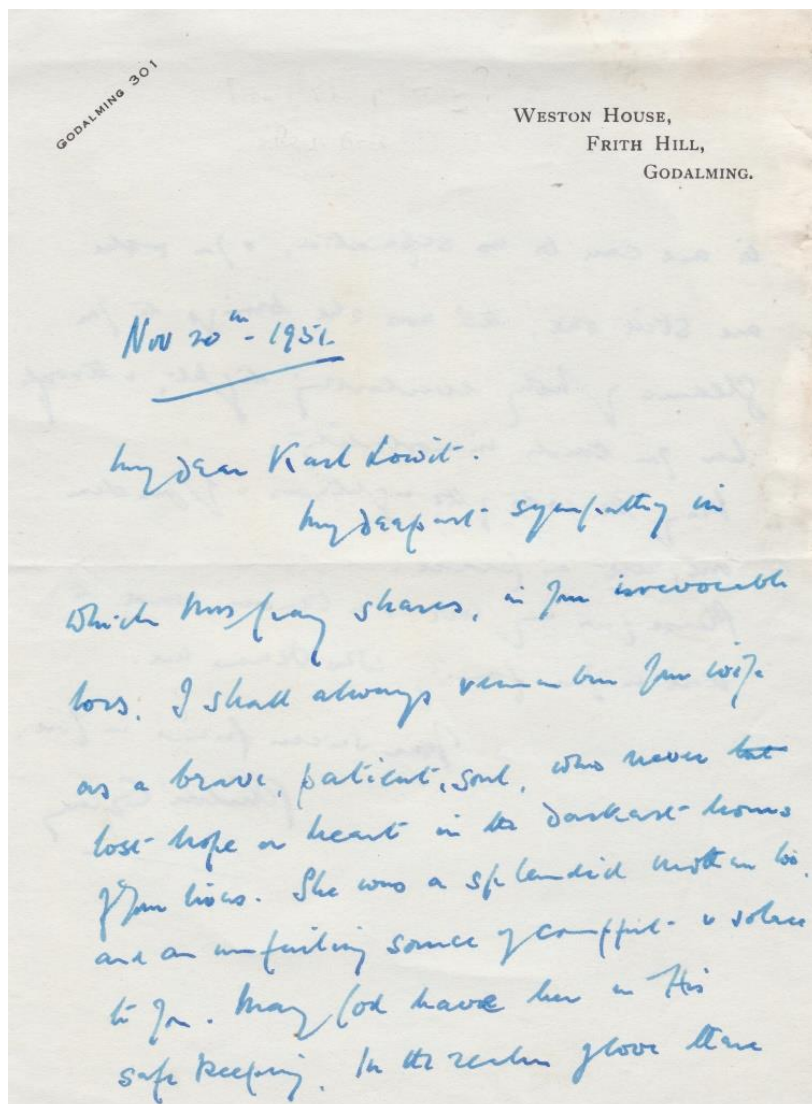 GODALMING 301
WESTON HOUSE,
FRITH HILL,
GODALMING.
Nov 20th - 1951.
My dear Karl Lowit.
My deepest sympathy in
which Mrs Gray shares, in your irrevocable
loss. I shall always remember your wife
as a brave, patient, soul, who never
lost hope or heart in the darkest hours
of your lives. She was a splendid mother too,
and an unfailing source of comfort & solace
to you. May God have her in His
safe keeping. In the realm of love there